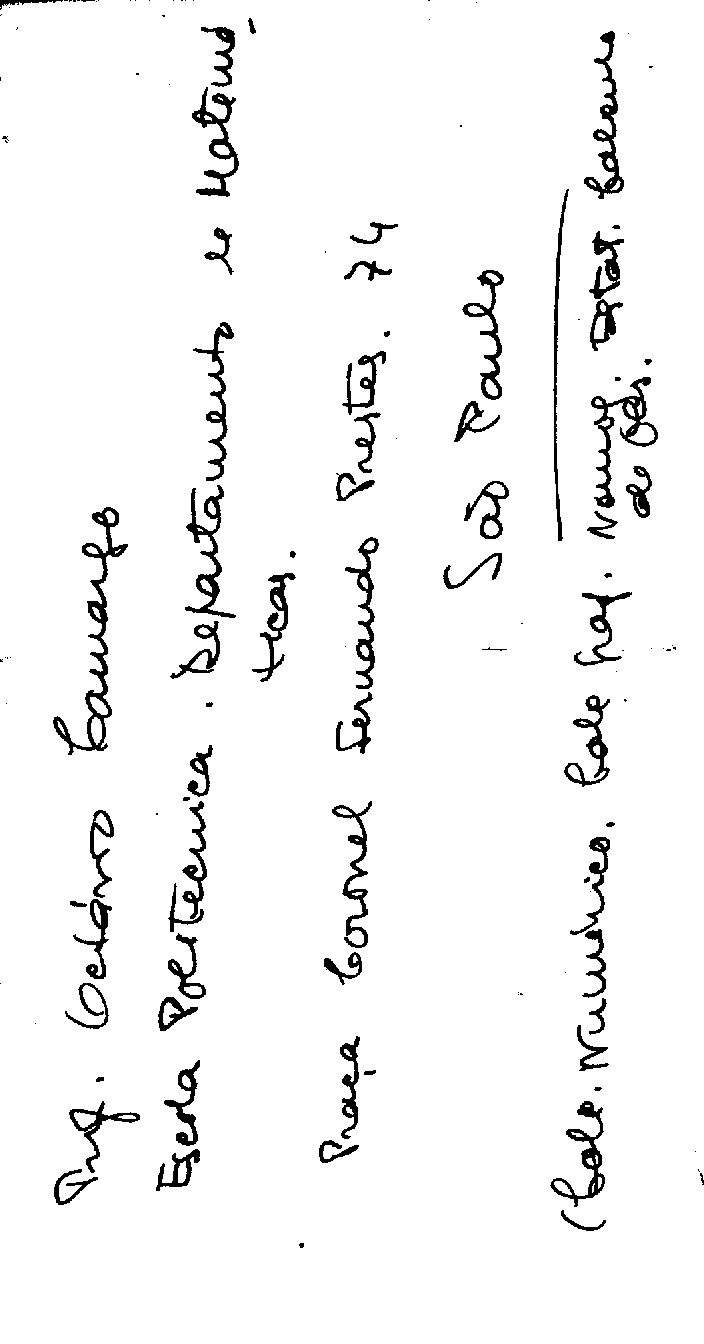 Prof. Octávio Camargo
Escola Politecnica. Departamento de Matemá-
ticas.
Praça Coronel Fernando Prestes. 74
São Paulo
(Calc. Numérico. Calc Graf. Nomog. Estat. Calculo
de Obs.